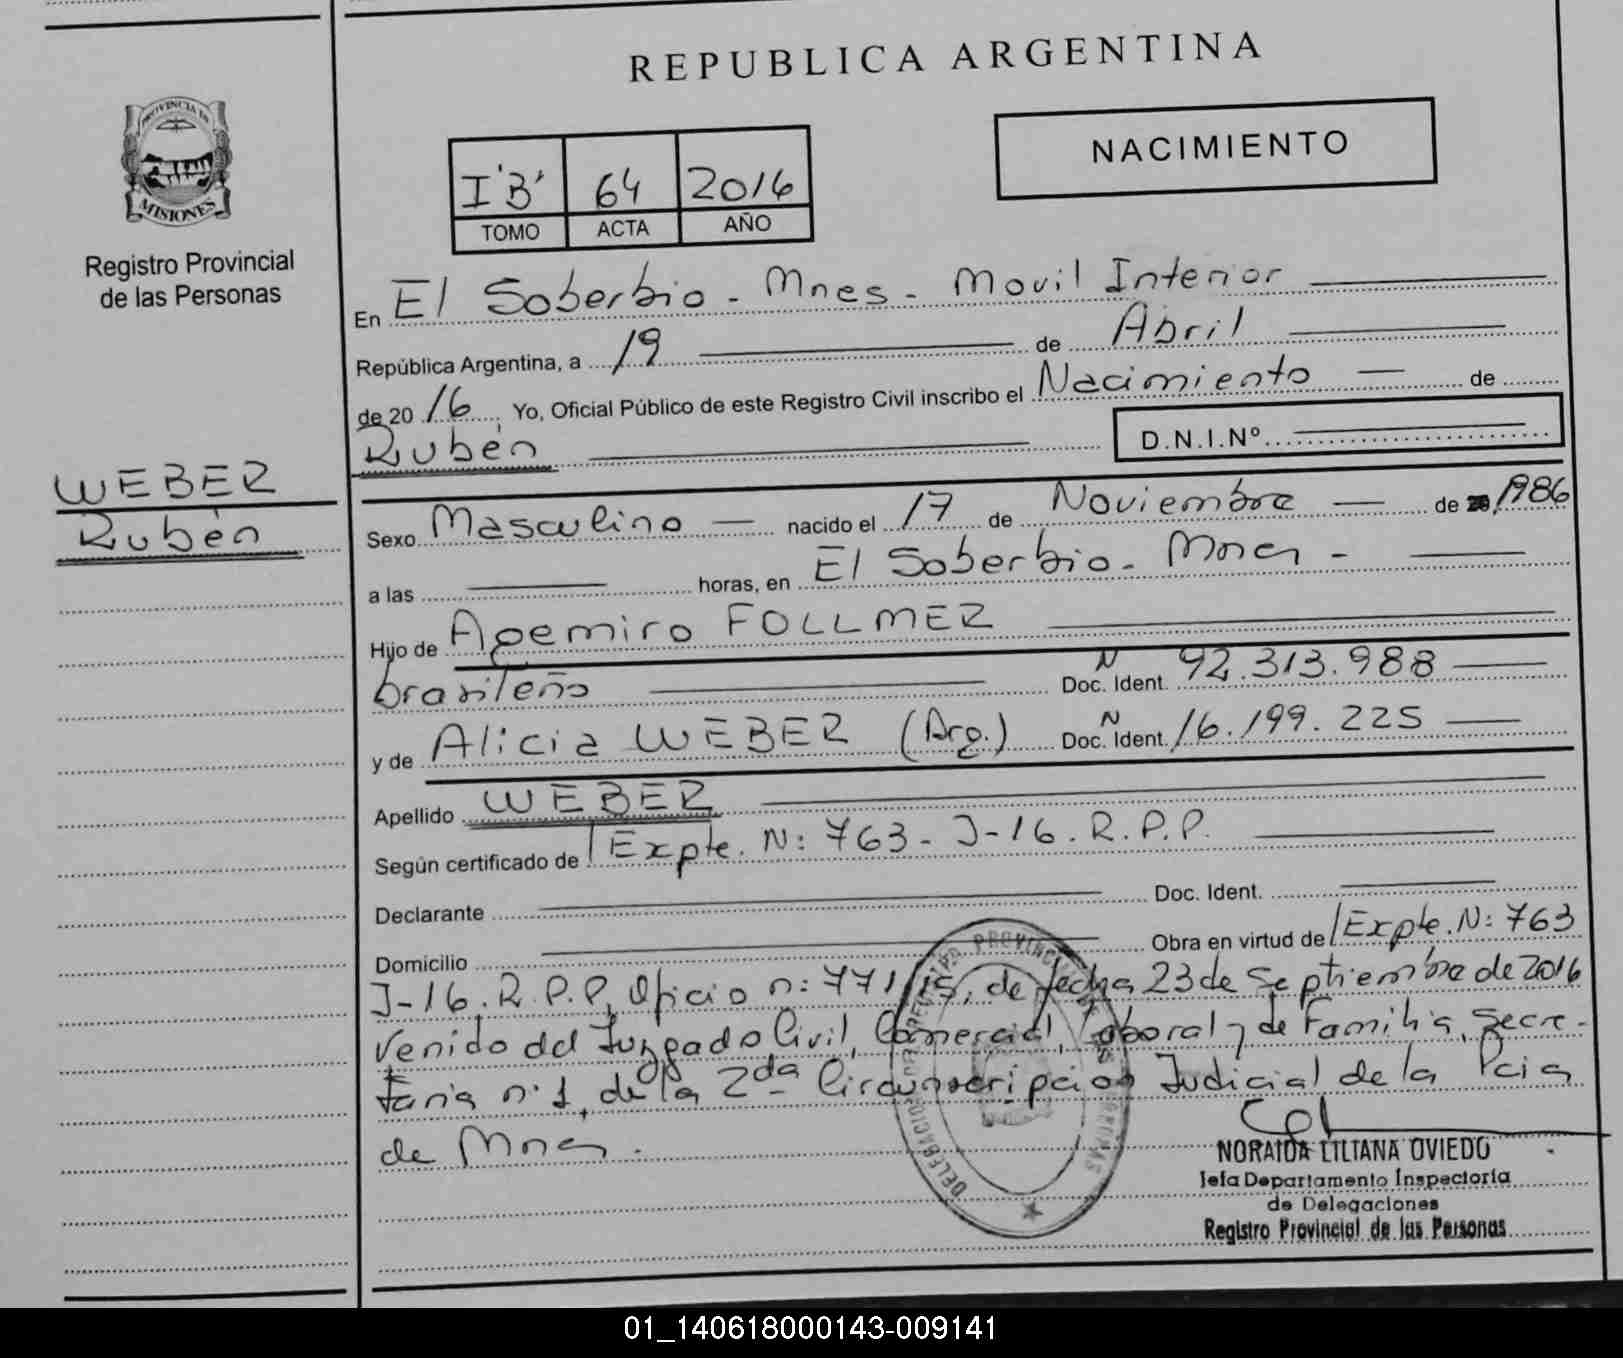 REPUBLICA ARGENTINA
NACIMIENTO
I 'B' 64 2016
TOMO ACTA AÑO
PROVINCIA DE
MISIONES
Registro Provincial
de las Personas
WEBER
Rubén
En El Soberbio - Mnes - Movil Interior
República Argentina, a 19 de Abril
de 2016. Yo, Oficial Público de este Registro Civil inscribo el Nacimiento de
Rubén D.N.I.Nº
Sexo Masculino nacido el 17 de Noviembre de 1986
a las horas, en El Soberbio - Mnes -
Hijo de Agemiro FOLLMER
brasileño Doc. Ident. N 92.313.988
y de Alicia WEBER (Arg.) Doc. Ident. N 16.199.225
Apellido WEBER
Según certificado de Expte. N: 763 - J-16. R.P.P.
Declarante Doc. Ident.
Domicilio Obra en virtud de Expte. N: 763
J-16. R.P.P, Oficio n: 771/15, de fecha 23 de Septiembre de 2016
Venido del Juzgado Civil, Comercial, Laboral y de Familia, Secre-
taria nº 1, de la 2da Circunscripcion Judicial de la Pcia
de Mnes.
NORAIDA LILIANA OVIEDO
Jefa Departamento Inspectoria
de Delegaciones
Registro Provincial de las Personas
01_140618000143-009141